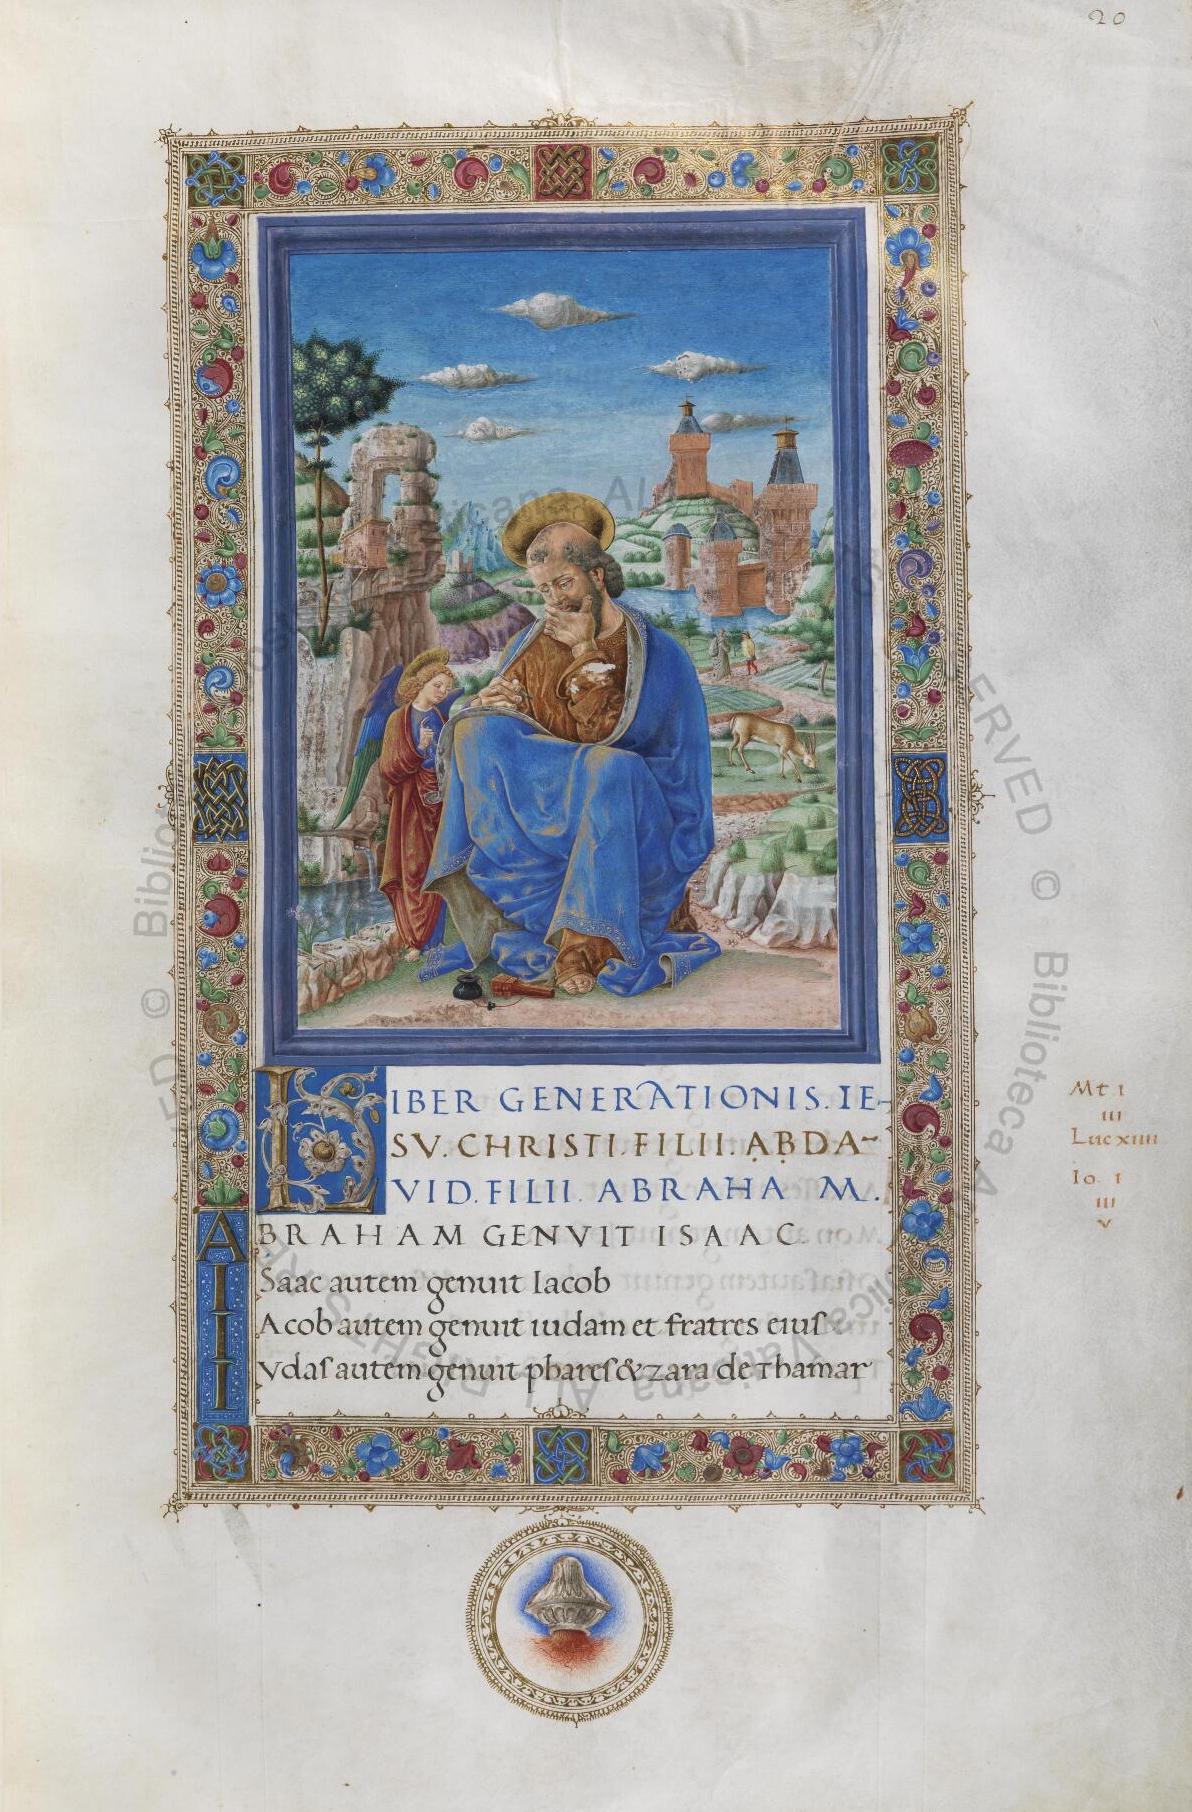 20
LIBER GENERATIONIS. IE-
SV. CHRISTI. FILII. AB DA-
VID. FILII. ABRAHA M.
ABRAHAM GENVIT ISAAC.
ISaac autem genuit Iacob
IAcob autem genuit iudam et fratres eius
IVdas autem genuit phares & zara de Thamar
Mt I
III
Luc XIIII
Io. I
III
V